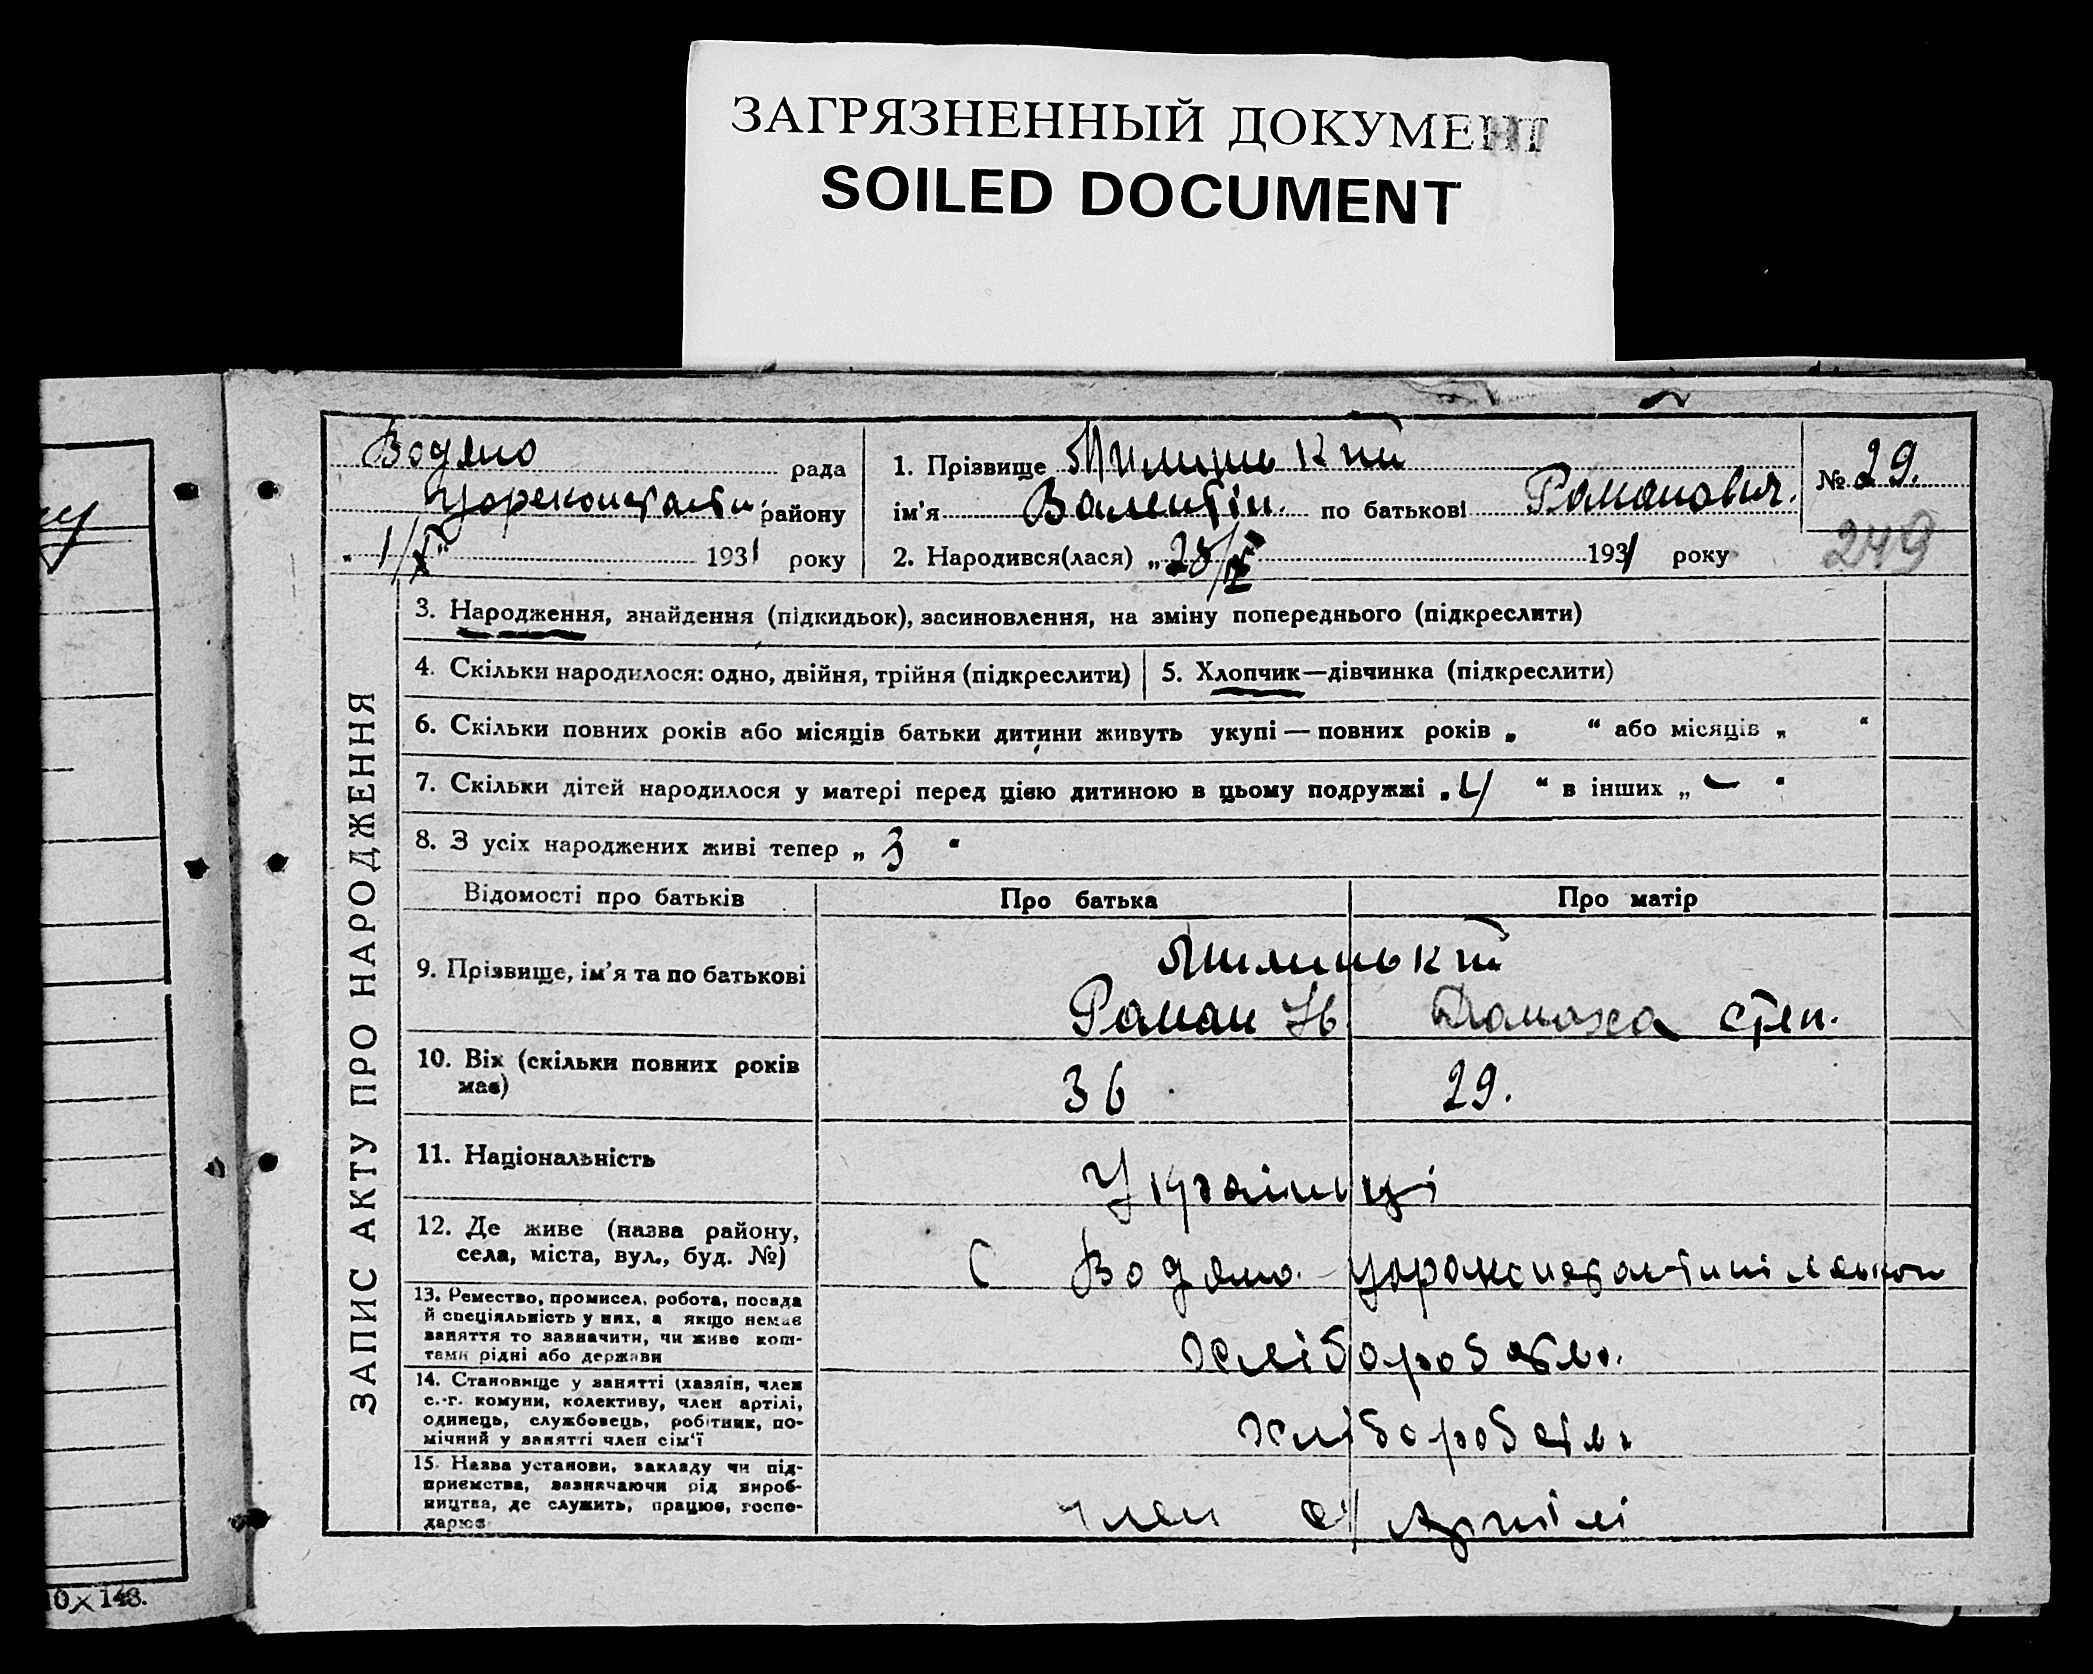 ЗАГРЯЗНЕННЫЙ ДОКУМЕНТ
SOILED DOCUMENT
Водяно рада
Цареконстанти. району
„ 1/X “ 1931 року
1. Прізвище
ім'я Валентін. по батькові Романович.
2. Народився(лася) „ 28/IX “ 1931 року
№ 29.
249
ЗАПИС АКТУ ПРО НАРОДЖЕННЯ
3. Народження, знайдення (підкидьок), засиновлення, на зміну попереднього (підкреслити)
4. Скільки народилося: одно, двійня, трійня (підкреслити)
5. Хлопчик—дівчинка (підкреслити)
6. Скільки повних років або місяців батьки дитини живуть укупі — повних років „ “ або місяців „ “
7. Скільки дітей народилося у матері перед цією дитиною в цьому подружжі „ 4 “ в інших „ — “
8. З усіх народжених живі тепер „ 3 “
Відомості про батьків Про батька Про матір
9. Прізвище, ім'я та по батькові
Роман Ів. Домаха Степ.
10. Вік (скільки повних років
має)
36 29.
11. Національність
Українці
12. Де живе (назва району,
села, міста, вул., буд. №)
С Водяно
13. Ремество, промисел, робота, посада
й спеціяльність у них, а якщо немає
заняття то зазначити, чи живе кош-
тами рідні або держави
Хлібороботво.
14. Становище у занятті (хазяїн, член
с.-г. комуни, колективу, член артілі,
одинець, службовець, робітник, по-
мічний у занятті член сім'ї
15. Назва установи, закладу чи під-
приємства, зазначаючи рід вироб-
ництва, де служить, працює, госпо-
дарює
член с/ Артілі
10 × 148.